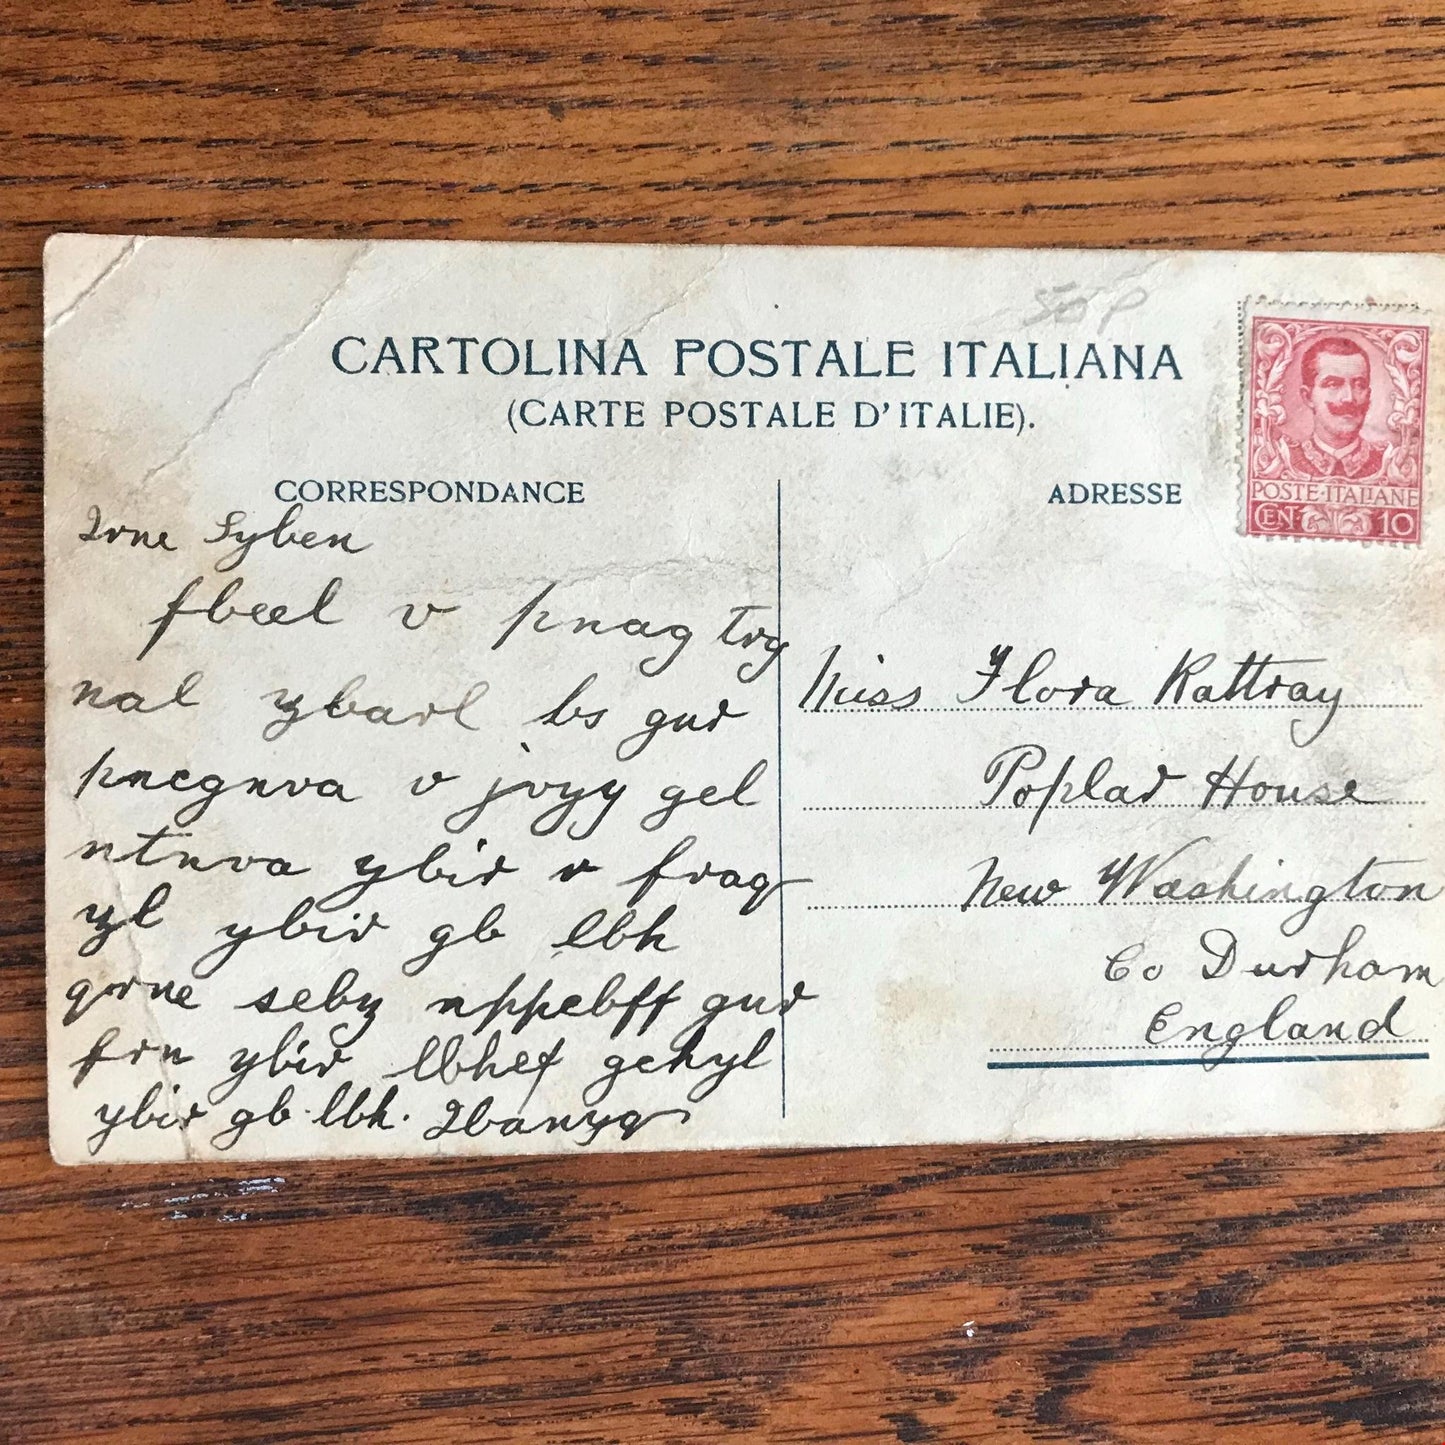 50P
CARTOLINA POSTALE ITALIANA
(CARTE POSTALE D'ITALIE).
CORRESPONDANCE
ADRESSE
POSTE·ITALIANE
CEN· 10
Qrne Syben
fbeel v pnag trg
nal zbarl bs gur
pncgnva v jvyy gel
ntnva ybir v fraq
zl ybir gb lbh
qrne sebz nppebff gur
frn ybir lbhef gehyl
ybir gb lbh. Qbanyq
Miss Flora Rattray
Poplar House
New Washington
Co Durham
England